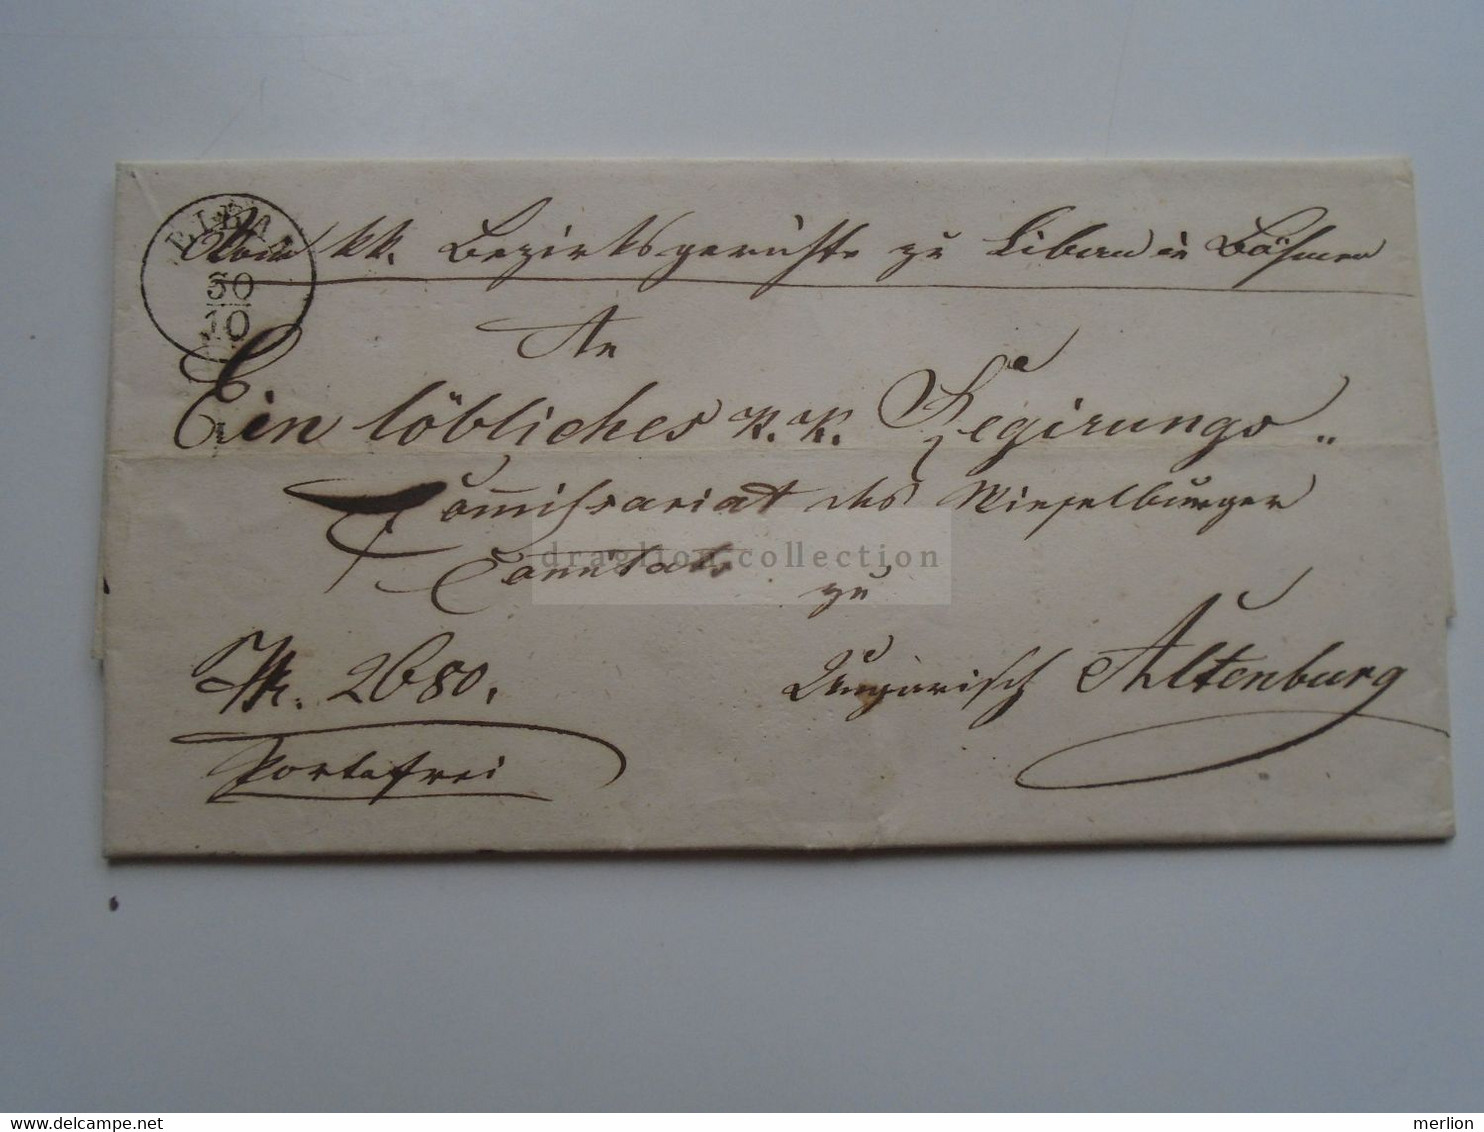 Vom kk. Bezirksgerichte zu Libau in Böhmen
30
10
An
Ein löbliches k. k. Regirungs„
Commissariat des Wieselburger
Comitats
zu
Ungarisch Altenburg
Nr. 2680.
Portofrei
draglion.collection
delcampe.net
merlion